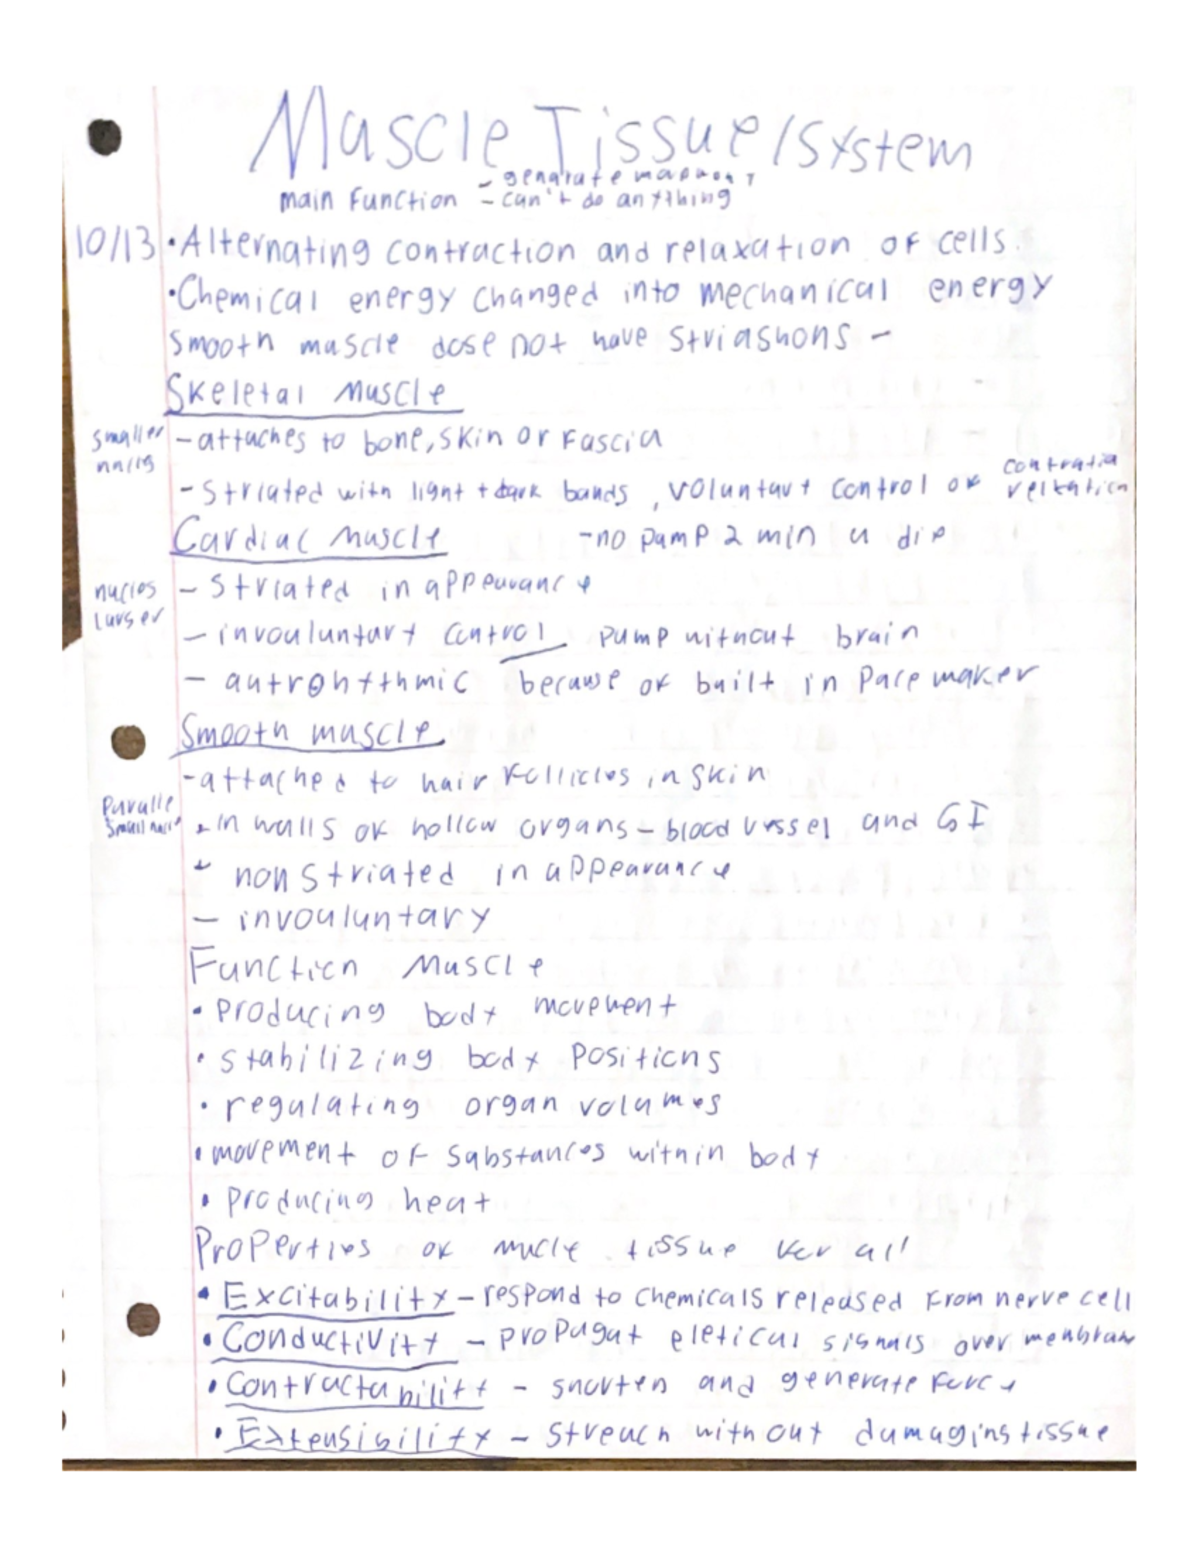 Muscle Tissue/System
- generate
main Function - can't do anything
10/13 • Alternating contraction and relaxation of cells.
• Chemical energy changed into mechanical energy
Smooth muscle dose not have striashons -
Skeletal Muscle
smaller - attaches to bone, skin or Fascia
- Striated with light + dark bands, voluntary control of
Cardiac Muscle - no pump 2 min u die
nuclos - Striated in appearance
larger
- invouluntary control pump without brain
- autrohythmic because of built in Pacemaker
Smooth muscle
- attached to hair Follicles in skin
Paralle
small - in walls of hollow organs - blood vessel and GI
- non striated in appearance
- invouluntary
Function Muscle
• Producing body movement
• stabilizing body Positions
• regulating organ volumes
• movement of substances within body
• Producing heat
Properties of mucle tissue for all
• Excitability - respond to chemicals released from nerve cell
• Conductivity - propagat eletical signals over menbran
• Contractability - shorten and generate force
• Extensibility - streach without damaging tissue